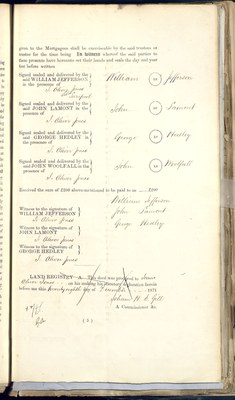 given to the Mortgagees shall be exerciseable by the said trustees or
trustee for the time being In witness whereof the said parties to
these presents have hereunto set their hands and seals the day and year
first before written
Signed sealed and delivered by the
said WILLIAM JEFFERSON
in the presence of
William Jefferson
J. Oliver Jones
Signed sealed and delivered by the
said JOHN LAMONT in the
presence of
John Lamont
J. Oliver Jones
Signed sealed and delivered by the
said GEORGE HEDLEY in the
presence of
George Hedley
J. Oliver Jones
Signed sealed and delivered by the
said JOHN WOOLFALL in the
presence of
John Woolfall
J. Oliver Jones
Received the sum of £200 above-mentioned to be paid to us £200
William Jefferson
Witness to the signature of
WILLIAM JEFFERSON
John Lamont
J. Oliver Jones
George Hedley
Witness to the signature of
JOHN LAMONT
J. Oliver Jones
Witness to the signature of
GEORGE HEDLEY
J. Oliver Jones
LAND REGISTRY This deed was produced to
Oliver Jones on his making his statutory declaration herein
before me this twenty eighth day of 1871
A Commissioner &c.
( 3 )